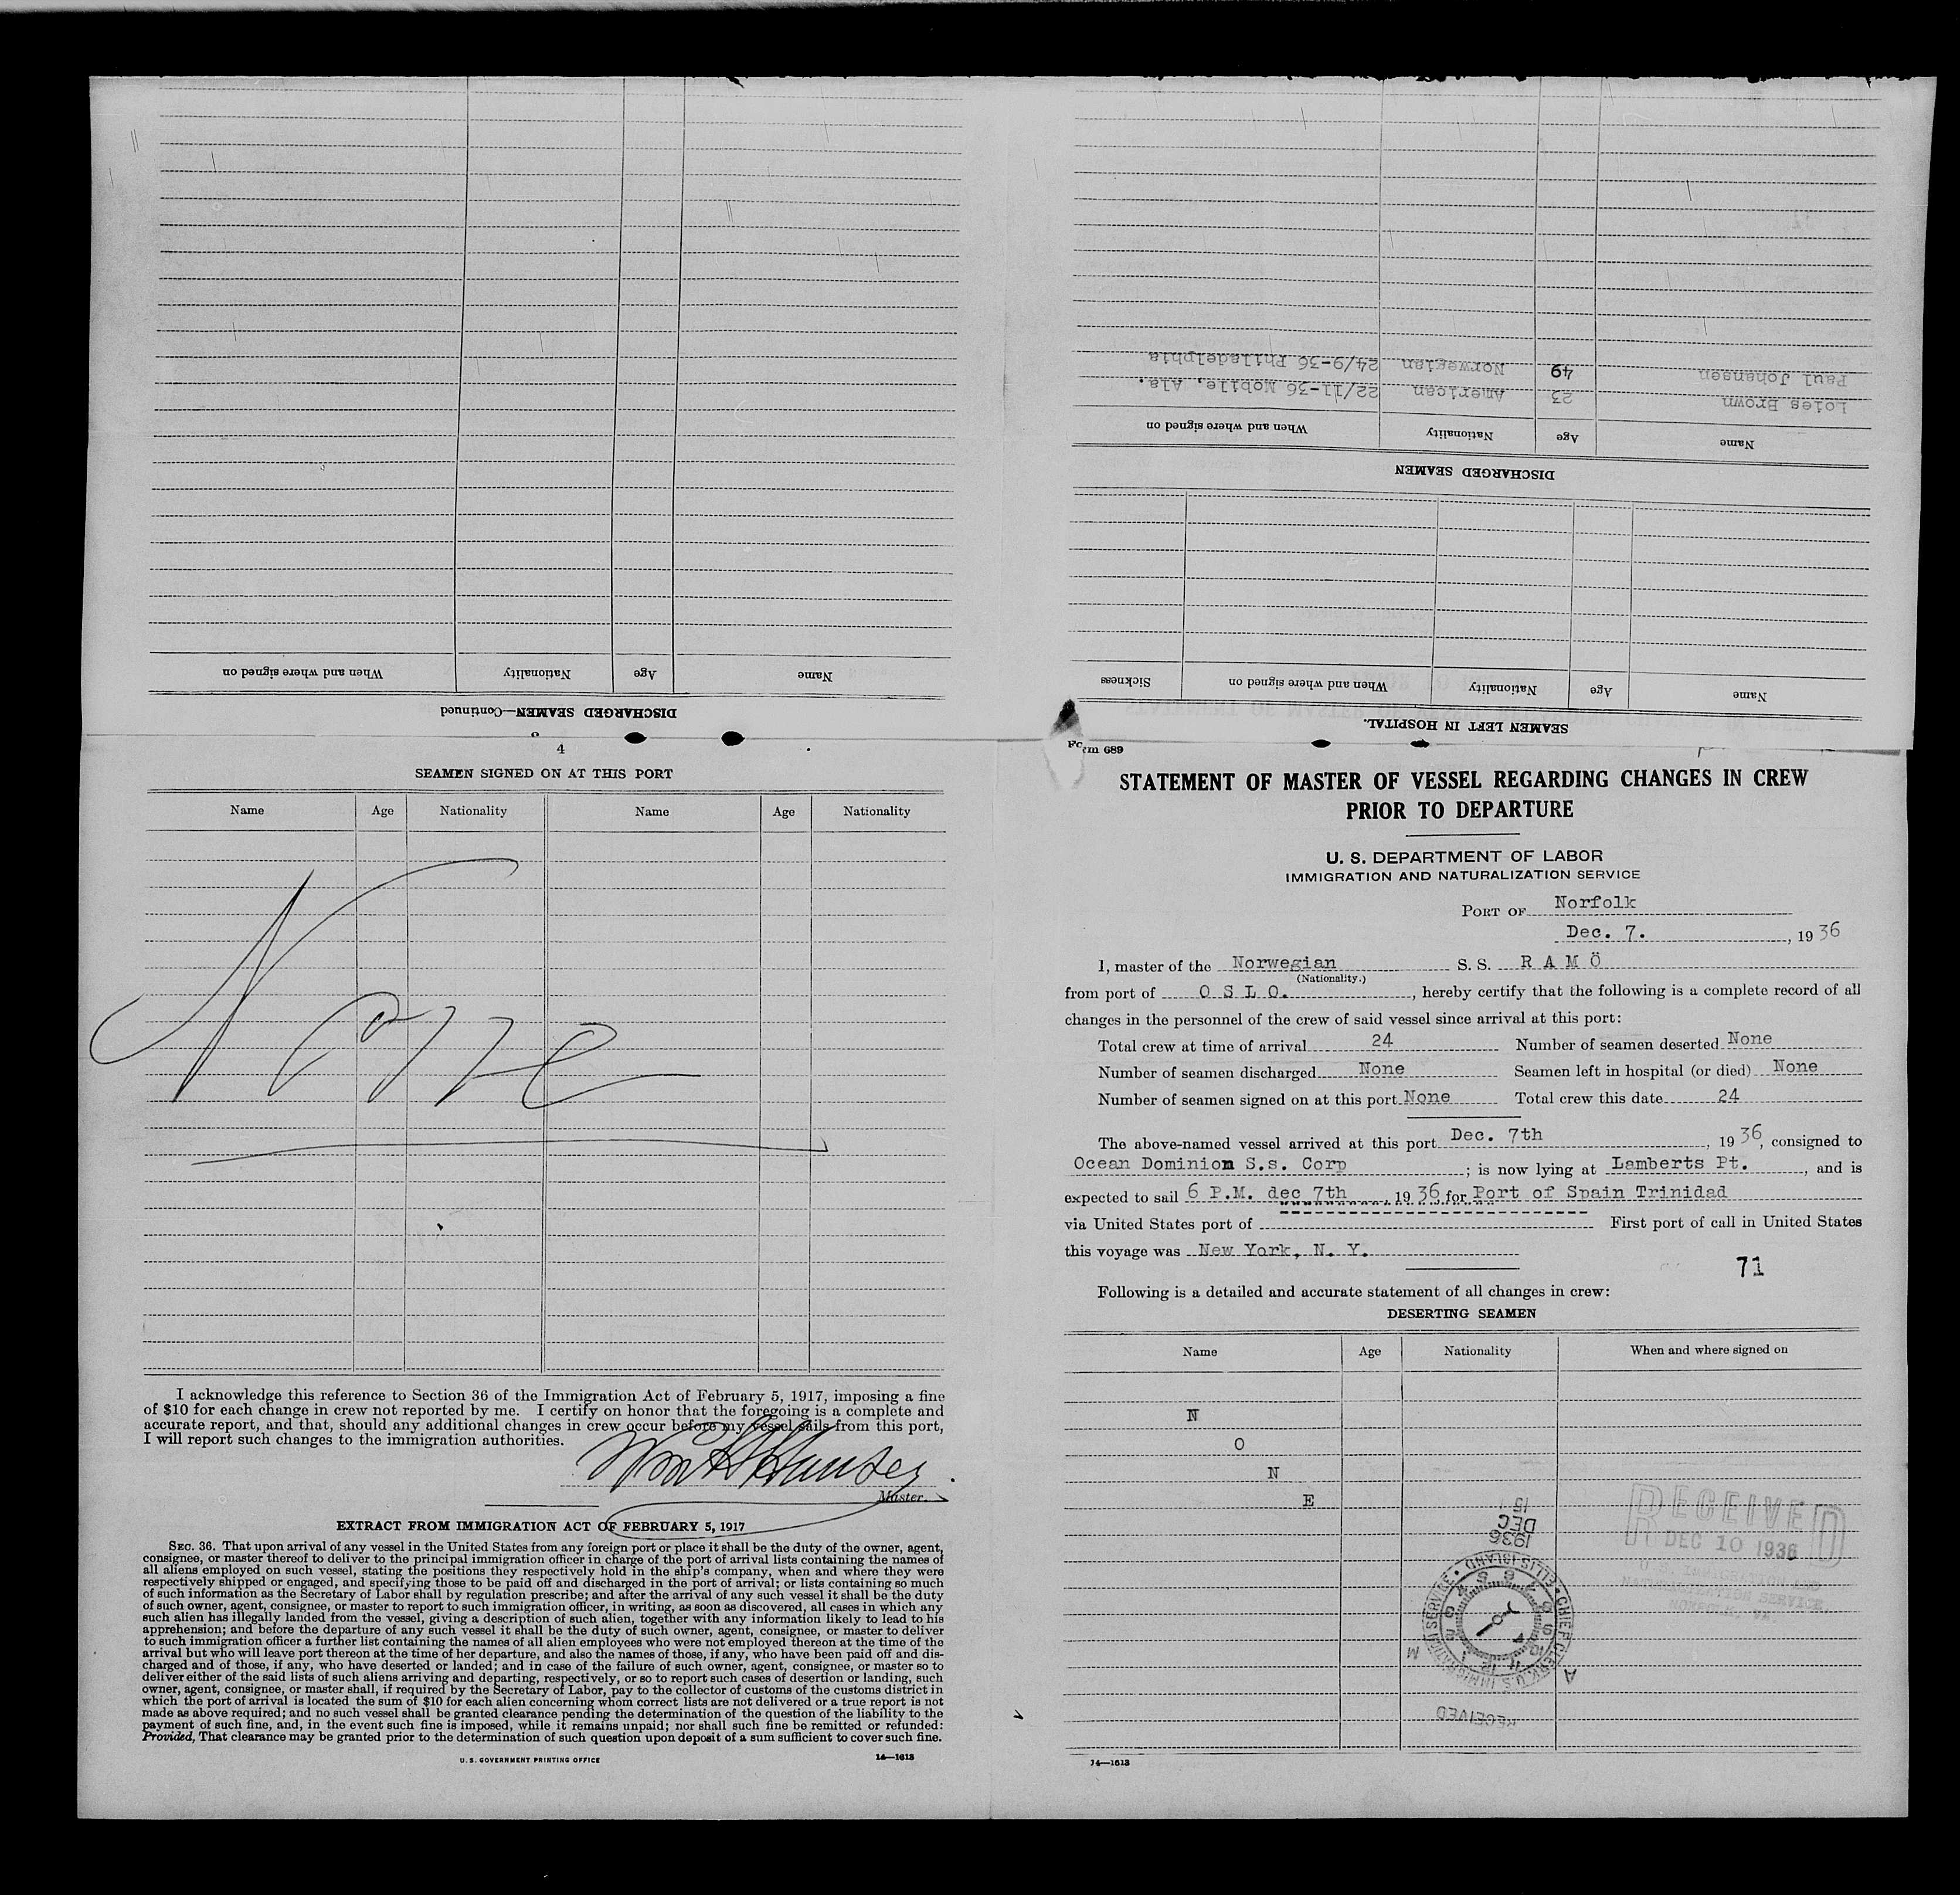 DISCHARGED SEAMEN—Continued
Name Age Nationality When and where signed on
SEAMEN LEFT IN HOSPITAL.
Name Age Nationality When and where signed on Sickness
DISCHARGED SEAMEN
Name Age Nationality When and where signed on
Loies Brown 23 American 22/11-36 Mobile, Ala.
Paul Johansen 49 Norwegian 24/9-36 Philadelphia
4
SEAMEN SIGNED ON AT THIS PORT
Name Age Nationality Name Age Nationality
None
I acknowledge this reference to Section 36 of the Immigration Act of February 5, 1917, imposing a fine
of $10 for each change in crew not reported by me. I certify on honor that the foregoing is a complete and
accurate report, and that, should any additional changes in crew occur before my vessel sails from this port,
I will report such changes to the immigration authorities.
Master.
EXTRACT FROM IMMIGRATION ACT OF FEBRUARY 5, 1917
SEC. 36. That upon arrival of any vessel in the United States from any foreign port or place it shall be the duty of the owner, agent,
consignee, or master thereof to deliver to the principal immigration officer in charge of the port of arrival lists containing the names of
all aliens employed on such vessel, stating the positions they respectively hold in the ship's company, when and where they were
respectively shipped or engaged, and specifying those to be paid off and discharged in the port of arrival; or lists containing so much
of such information as the Secretary of Labor shall by regulation prescribe; and after the arrival of any such vessel it shall be the duty
of such owner, agent, consignee, or master to report to such immigration officer, in writing, as soon as discovered, all cases in which any
such alien has illegally landed from the vessel, giving a description of such alien, together with any information likely to lead to his
apprehension; and before the departure of any such vessel it shall be the duty of such owner, agent, consignee, or master to deliver
to such immigration officer a further list containing the names of all alien employees who were not employed thereon at the time of the
arrival but who will leave port thereon at the time of her departure, and also the names of those, if any, who have been paid off and dis-
charged and of those, if any, who have deserted or landed; and in case of the failure of such owner, agent, consignee, or master so to
deliver either of the said lists of such aliens arriving and departing, respectively, or so to report such cases of desertion or landing, such
owner, agent, consignee, or master shall, if required by the Secretary of Labor, pay to the collector of customs of the customs district in
which the port of arrival is located the sum of $10 for each alien concerning whom correct lists are not delivered or a true report is not
made as above required; and no such vessel shall be granted clearance pending the determination of the question of the liability to the
payment of such fine, and, in the event such fine is imposed, while it remains unpaid; nor shall such fine be remitted or refunded:
Provided, That clearance may be granted prior to the determination of such question upon deposit of a sum sufficient to cover such fine.
U. S. GOVERNMENT PRINTING OFFICE 14—1613
Form 689
STATEMENT OF MASTER OF VESSEL REGARDING CHANGES IN CREW
PRIOR TO DEPARTURE
U. S. DEPARTMENT OF LABOR
IMMIGRATION AND NATURALIZATION SERVICE
PORT OF Norfolk
Dec. 7. , 19 36
I, master of the Norwegian S. S. R A M Ö
(Nationality.)
from port of O S L O. , hereby certify that the following is a complete record of all
changes in the personnel of the crew of said vessel since arrival at this port:
Total crew at time of arrival 24 Number of seamen deserted None
Number of seamen discharged None Seamen left in hospital (or died) None
Number of seamen signed on at this port None Total crew this date 24
The above-named vessel arrived at this port Dec. 7th , 19 36, consigned to
Ocean Dominion S.s. Corp ; is now lying at Lamberts Pt. , and is
expected to sail 6 P.M. dec 7th , 19 36 for Port of Spain Trinidad
via United States port of First port of call in United States
this voyage was New York, N. Y.
71
Following is a detailed and accurate statement of all changes in crew:
DESERTING SEAMEN
Name Age Nationality When and where signed on
N
O
N
E
1936
DEC
15
CHIEF CLERK U.S. IMMIGRATION SERVICE • ELLIS ISLAND •
A M
RECEIVED
RECEIVED
DEC 10 1936
U. S. IMMIGRATION AND
NATURALIZATION SERVICE,
NORFOLK, VA.
14—1613